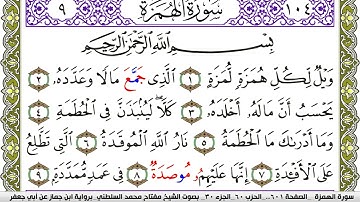 ١٠٤ سُورَةُ الهُمَزَةِ ٩
بِسْمِ اللَّهِ الرَّحْمَٰنِ الرَّحِيمِ
وَيْلٌ لِكُلِّ هُمَزَةٍ لُمَزَةٍ ١ الَّذِى جَمَّعَ مَالًا وَعَدَّدَهُ ٢
يَحْسَبُ أَنَّ مَالَهُ أَخْلَدَهُ ٣ كَلَّا لَيُنۢبَذَنَّ فِى الْحُطَمَةِ ٤
وَمَا أَدْرَىٰكَ مَا الْحُطَمَةُ ٥ نَارُ اللَّهِ الْمُوقَدَةُ ٦ الَّتِى تَطَّلِعُ
عَلَى الْأَفْـِٔدَةِ ٧ إِنَّهَا عَلَيْهِمْ مُوصَدَةٌ ٨ فِى عَمَدٍ مُمَدَّدَةٍ ٩
سورة الهمزة الصفحة ٦٠١ ... الحزب ٦٠ الجزء ٣٠ بصوت الشيخ مفتاح محمد السلطني برواية ابن جماز عن أبي جعفر